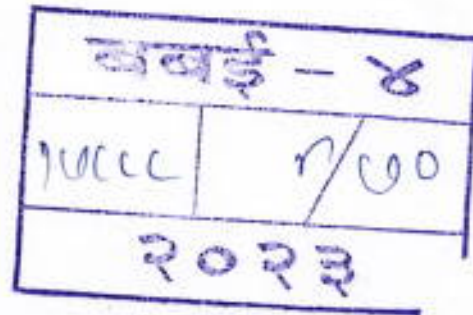 बबई - ४
१७८८८ १/७०
२०२३